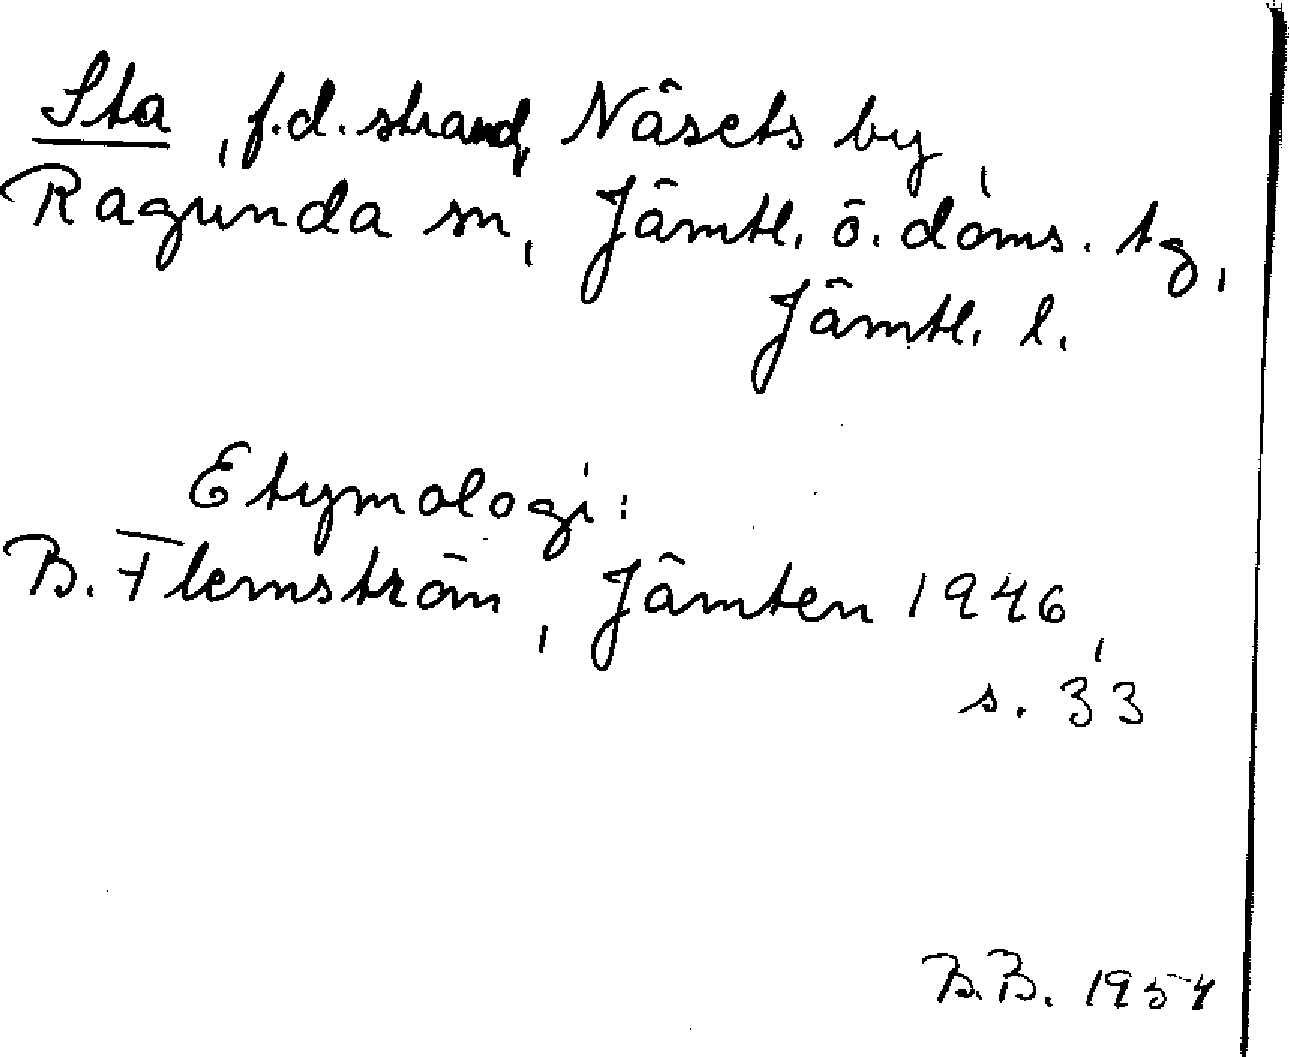 Sta, f.d. strand, Näsets by,
Ragunda sn, Jämtl. ö. doms. tg,
Jämtl. l.
Etymologi:
B. Flemström, Jämten 1946,
s. 33
B.B. 1954